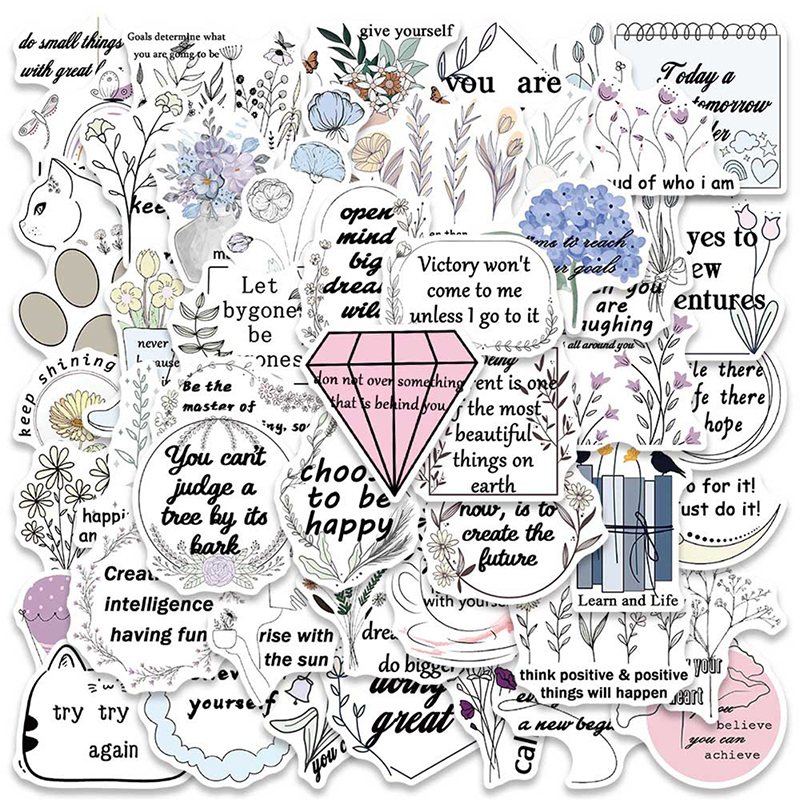 do small things
with great
Goals determine what
you are going to be
give yourself
you are
Today a
tomorrow
of who i am
open
mind
big
dream
wild
Victory won't
come to me
unless I go to it
to reach
goals
yes to
Let
bygones
be
you
are
all around you
never
because
keep shining
Be the
master of
don not over something
that is behind you
being
is one
of the most
beautiful
things on
earth
there
there
hope
You can't
judge a
tree by its
bark
choose
to be
happy
now, is to
create the
future
for it!
just do it!
happi
an
intelligence
having fun
rise with
the sun
with yourse
do bigger
Learn and Life
think positive & positive
things will happen
your
heart
try try
again
yourself
doing
great
you c
a new begi
cal
you
believe
you can
achieve